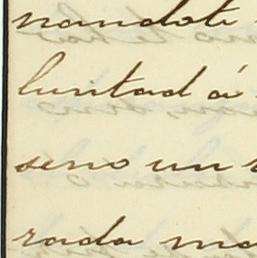 nandote
luntad á
seno un
rada ma